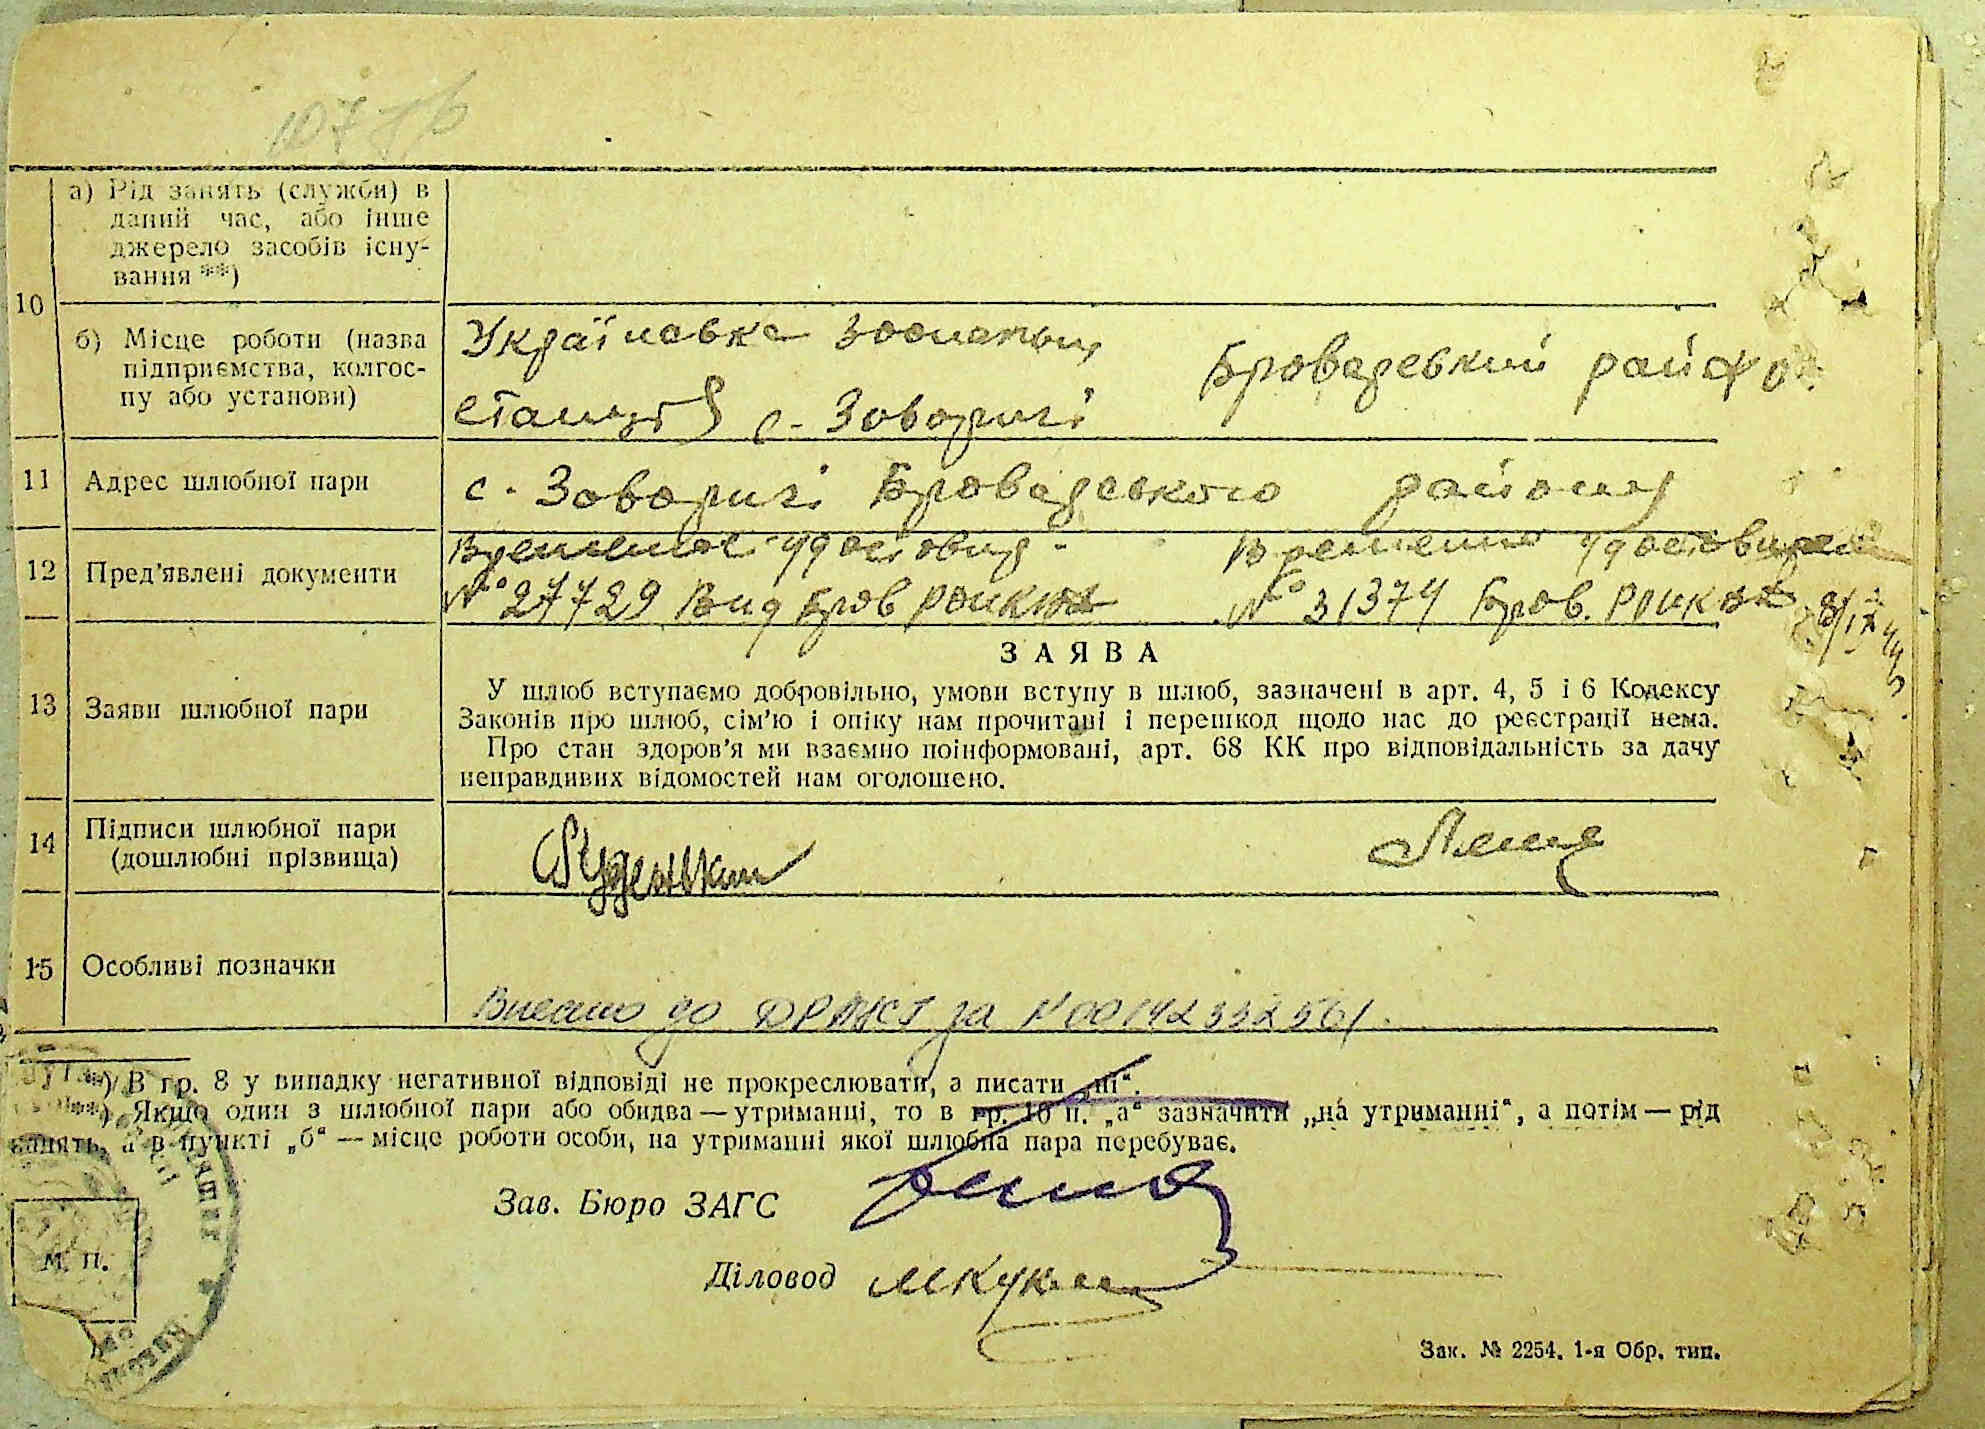 107
а) Рід занять (служби) в
даний час, або інше
джерело засобів існу-
вання **)
10
б) Місце роботи (назва
підприємства, колгос-
пу або установи)
Українська
станція с. Заворичі
Броварський райфо
11 Адрес шлюбної пари
с. Заворичі Броварського району
12 Пред'явлені документи
Временное удостовир Временне удостовирение
№ 27729 Вид Бров № 31374 Бров.
ЗАЯВА
13 Заяви шлюбної пари
У шлюб вступаємо добровільно, умови вступу в шлюб, зазначені в арт. 4, 5 і 6 Кодексу
Законів про шлюб, сім'ю і опіку нам прочитані і перешкод щодо нас до реєстрації нема.
Про стан здоров'я ми взаємно поінформовані, арт. 68 КК про відповідальність за дачу
неправдивих відомостей нам оголошено.
14 Підписи шлюбної пари
(дошлюбні прізвища)
15 Особливі позначки
Внесено до ДРАЦСГ за №00142332561.
*) В гр. 8 у випадку негативної відповіді не прокреслювати, а писати „ні“.
**) Якщо один з шлюбної пари або обидва — утриманці, то в гр. 10 п. „а“ зазначити „на утриманні“, а потім — рід
занять, а в пункті „б“ — місце роботи особи, на утриманні якої шлюбна пара перебуває.
Зав. Бюро ЗАГС
М. П.
Діловод
Зак. № 2254. 1-я Обр. тип.